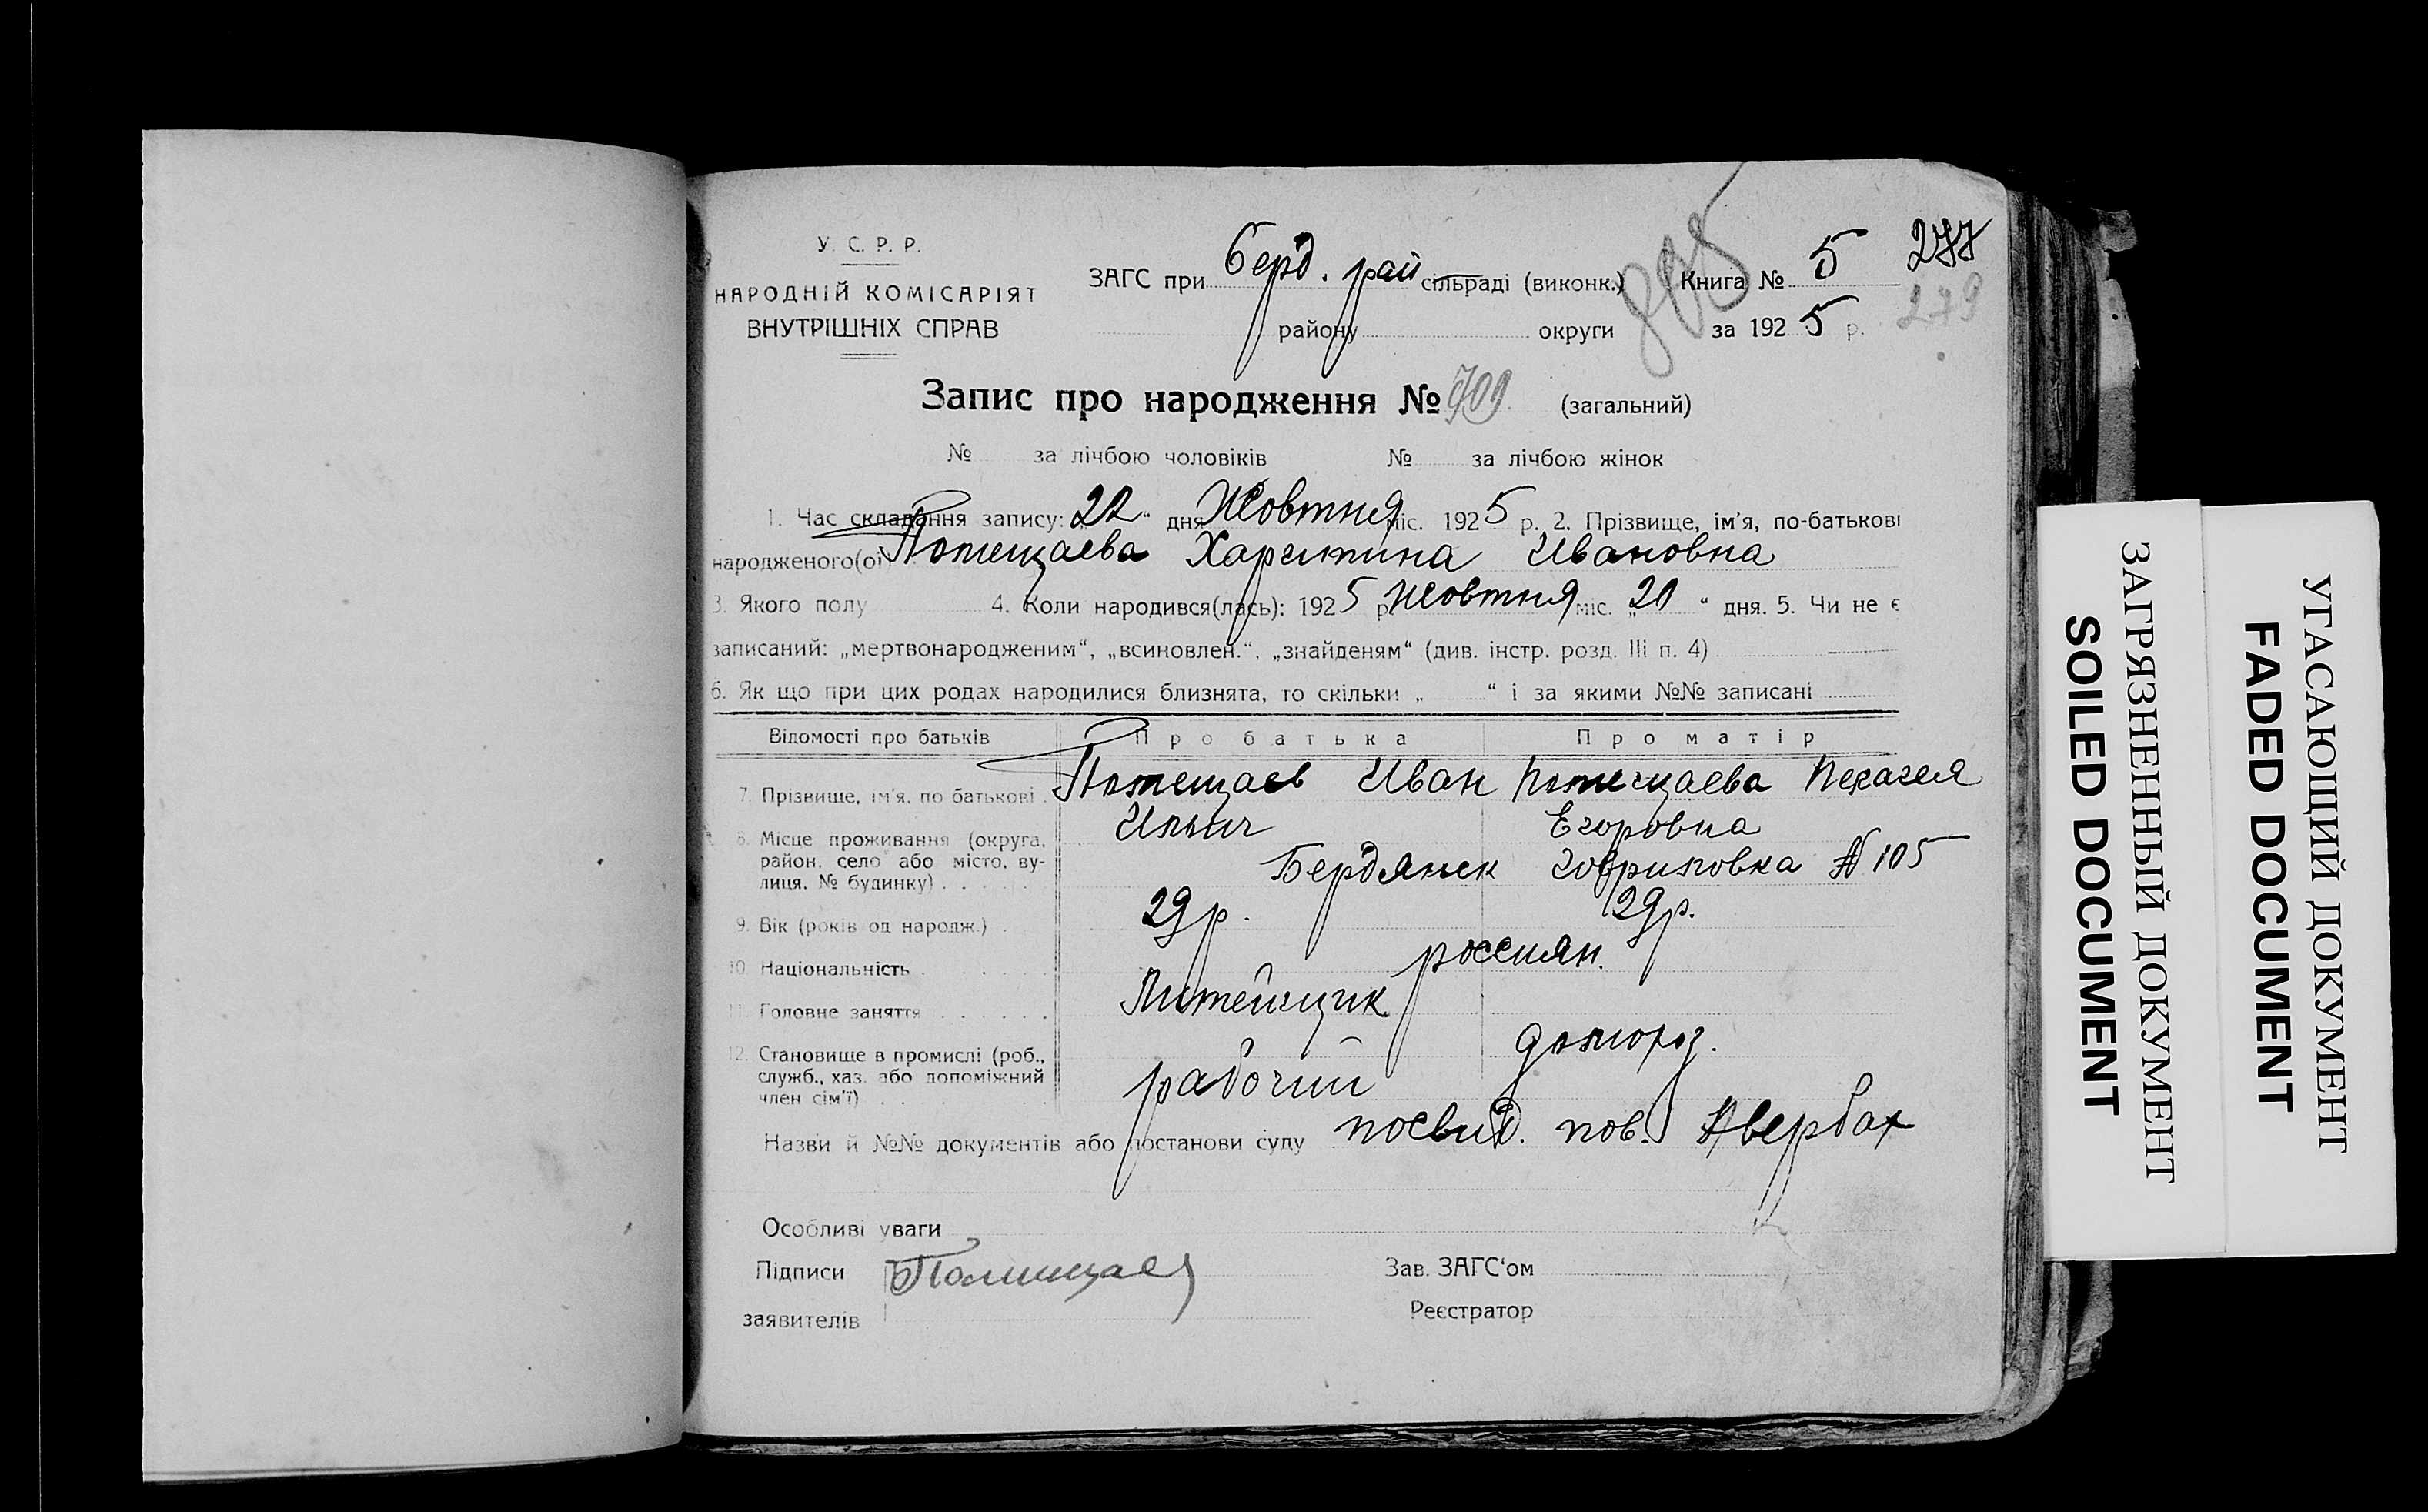 У. С. Р. Р.
НАРОДНІЙ КОМІСАРІЯТ
ВНУТРІШНІХ СПРАВ
ЗАГС при Берд. рай сільраді (виконк.)
району округи
Книга № 5 277
за 1925 р. 279
Запис про народження № 909 (загальний)
№ за лічбою чоловіків № за лічбою жінок
1. Час складання запису: „22“ дня Жовтня міс. 1925 р. 2. Прізвище, ім'я, по-батькові
народженого(ої) Потещаева Харитина Ивановна
3. Якого полу 4. Коли народився(лась): 1925 р. Жовтня міс. „20“ дня. 5. Чи не є
записаний: „мертвонародженим“, „всиновлен.“, „знайденям“ (див. інстр. розд. III п. 4)
6. Як що при цих родах народилися близнята, то скільки „ “ і за якими №№ записані
Відомості про батьків Про батька Про матір
7. Прізвище, ім'я, по батькові Потещаев Иван Потещаева Пелагея
Ильич Егоровна
8. Місце проживання (округа,
район, село або місто, ву-
лиця, № будинку) Бердянск № 105
9. Вік (років од народж.) 29 р. 29 р.
10. Національність россиян.
11. Головне заняття Литейщик
домогоз.
12. Становище в промислі (роб.,
служб., хаз. або допоміжний
член сім'ї) рабочий
Назви й №№ документів або постанови суду посвид. пов. Авербах
Особливі уваги
Підписи Зав. ЗАГС'ом
заявителів Реєстратор
ЗАГРЯЗНЕННЫЙ ДОКУМЕНТ
SOILED DOCUMENT
УГАСАЮЩИЙ ДОКУМЕНТ
FADED DOCUMENT